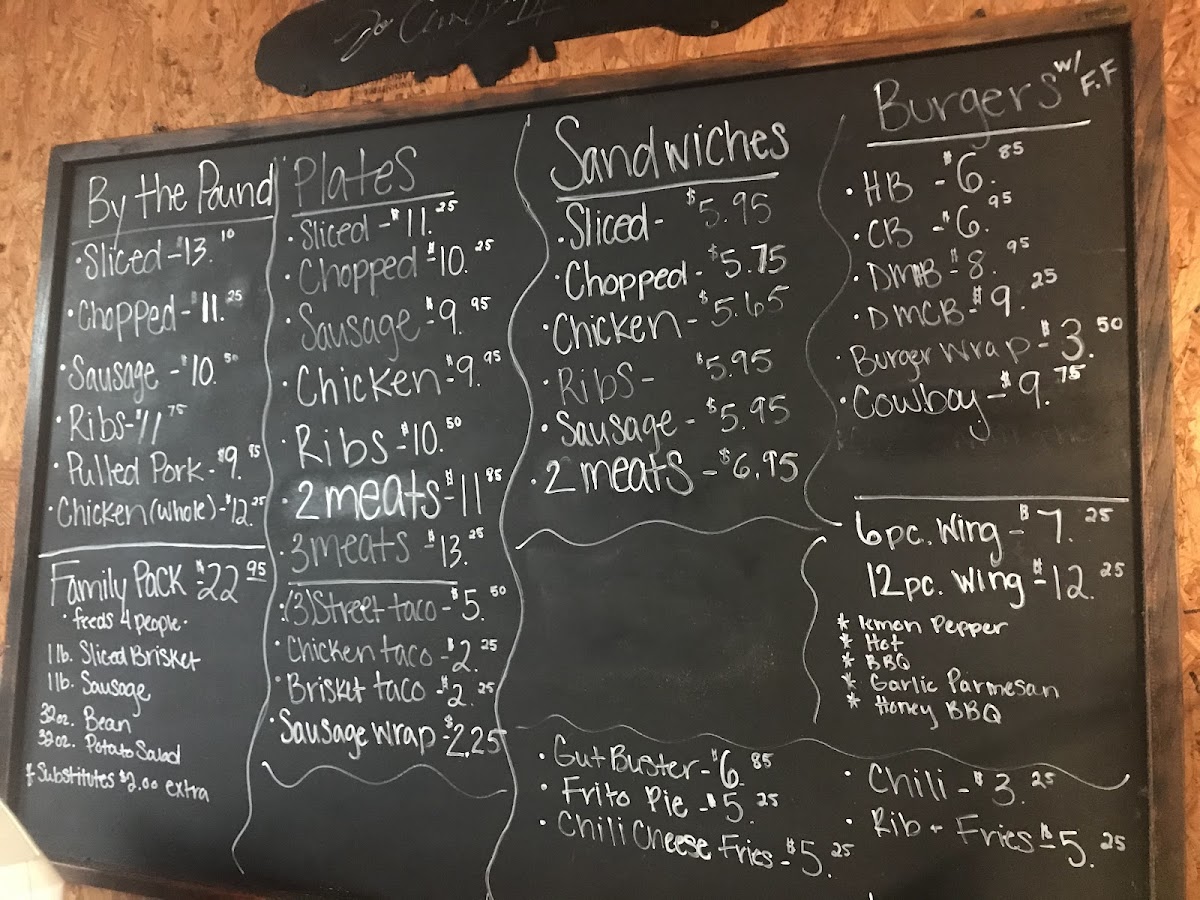 By the Pound
·Sliced-$13.10
·Chopped-11.25
·Sausage -$10.50
·Ribs-$11 75
·Pulled Pork-$9.85
·Chicken (whole)-$12.25
Family Pack $22 95
·feeds 4 people·
1 lb. Sliced Brisket
1 lb. Sausage
32oz. Bean
32oz. Potato Salad
* Substitutes $2.00 extra
Plates
·Sliced -$11.25
·Chopped $10.25
·Sausage-$9.95
·Chicken-$9.95
·Ribs-$10.50
·2 meats-$11 85
·3 meats-$13.25
·(3) Street taco-$5.50
·Chicken taco-$2.25
·Brisket taco-$2.25
·Sausage wrap-$2.25
Sandwiches
·Sliced- $5.95
·Chopped- $5.75
·Chicken- $5.65
·Ribs- $5.95
·Sausage- $5.95
·2 meats-$6.95
Burgers w/ F.F
·HB -$6.85
·CB -$6.95
·DMHB-$8.95
·DMCB-$9.25
·Burger wrap-$3.50
·Cowboy-$9.75
6pc. Wing-$7.25
12pc. Wing-$12.25
* lemon Pepper
* Hot
* BBQ
* Garlic Parmesan
* Honey BBQ
·Gut Buster-$6.85
·Frito Pie -$5.25
·Chili Cheese Fries-$5.25
·Chili-$3.25
·Rib + Fries-$5.25